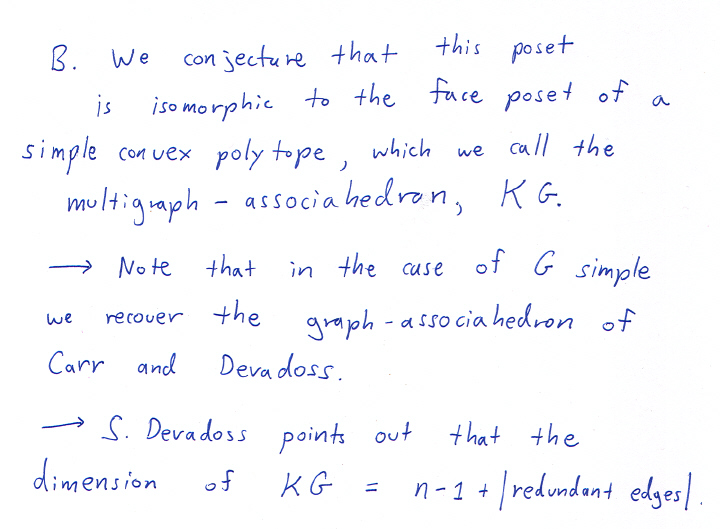 B. We conjecture that this poset
is isomorphic to the face poset of a
simple convex polytope, which we call the
multigraph - associahedron, KG.
→ Note that in the case of G simple
we recover the graph - associahedron of
Carr and Devadoss.
→ S. Devadoss points out that the
dimension of KG = n-1 + |redundant edges|.